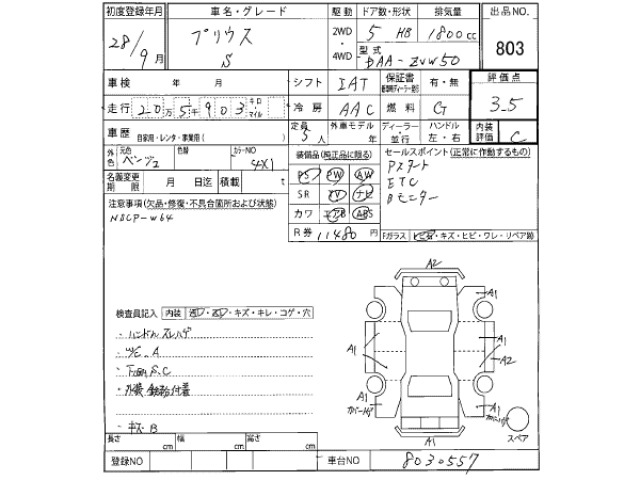 初度登録年月 車名・グレード 駆動 ドア数・形状 排気量 出品NO.
28/9月 プリウス S 2WD 4WD 5 HB 1800cc 803
型式 DAA-ZVW50
車検 年 月 シフト IAT 保証書 有・無 評価点
走行 20万5千903 キロ マイル 冷房 AAC 燃料 G 3.5
車歴 自家用・レンタ・事業用( ) 定員 5人 外車モデル年 ディーラー 並行 ハンドル 左・右 内装評価 C
外色 元色 ベージュ 色替 カラーNO 4X1
装備品(純正品に限る) セールスポイント(正常に作動するもの)
名義変更期限 月 日迄 積載 t
PS PW AW Pスタート
SR TV ナビ ETC
カワ エアB ABS Bモニター
注意事項(欠品・修復・不具合箇所および状態)
NSCP-W64
R券 11480円 Fガラス ヒビ石・キズ・ヒビ・ワレ・リペア跡
A2
A1
A1
検査員記入 内装 ・キズ・キレ・コゲ・穴
・ハンドルスレハゲ
・W/C.A
・下回りS.C
・外装 付着
・キズB
A1
A2
A1
A1
A1
A1
スペア
長さ cm 幅 cm 高さ cm
登録NO 車台NO 8030557